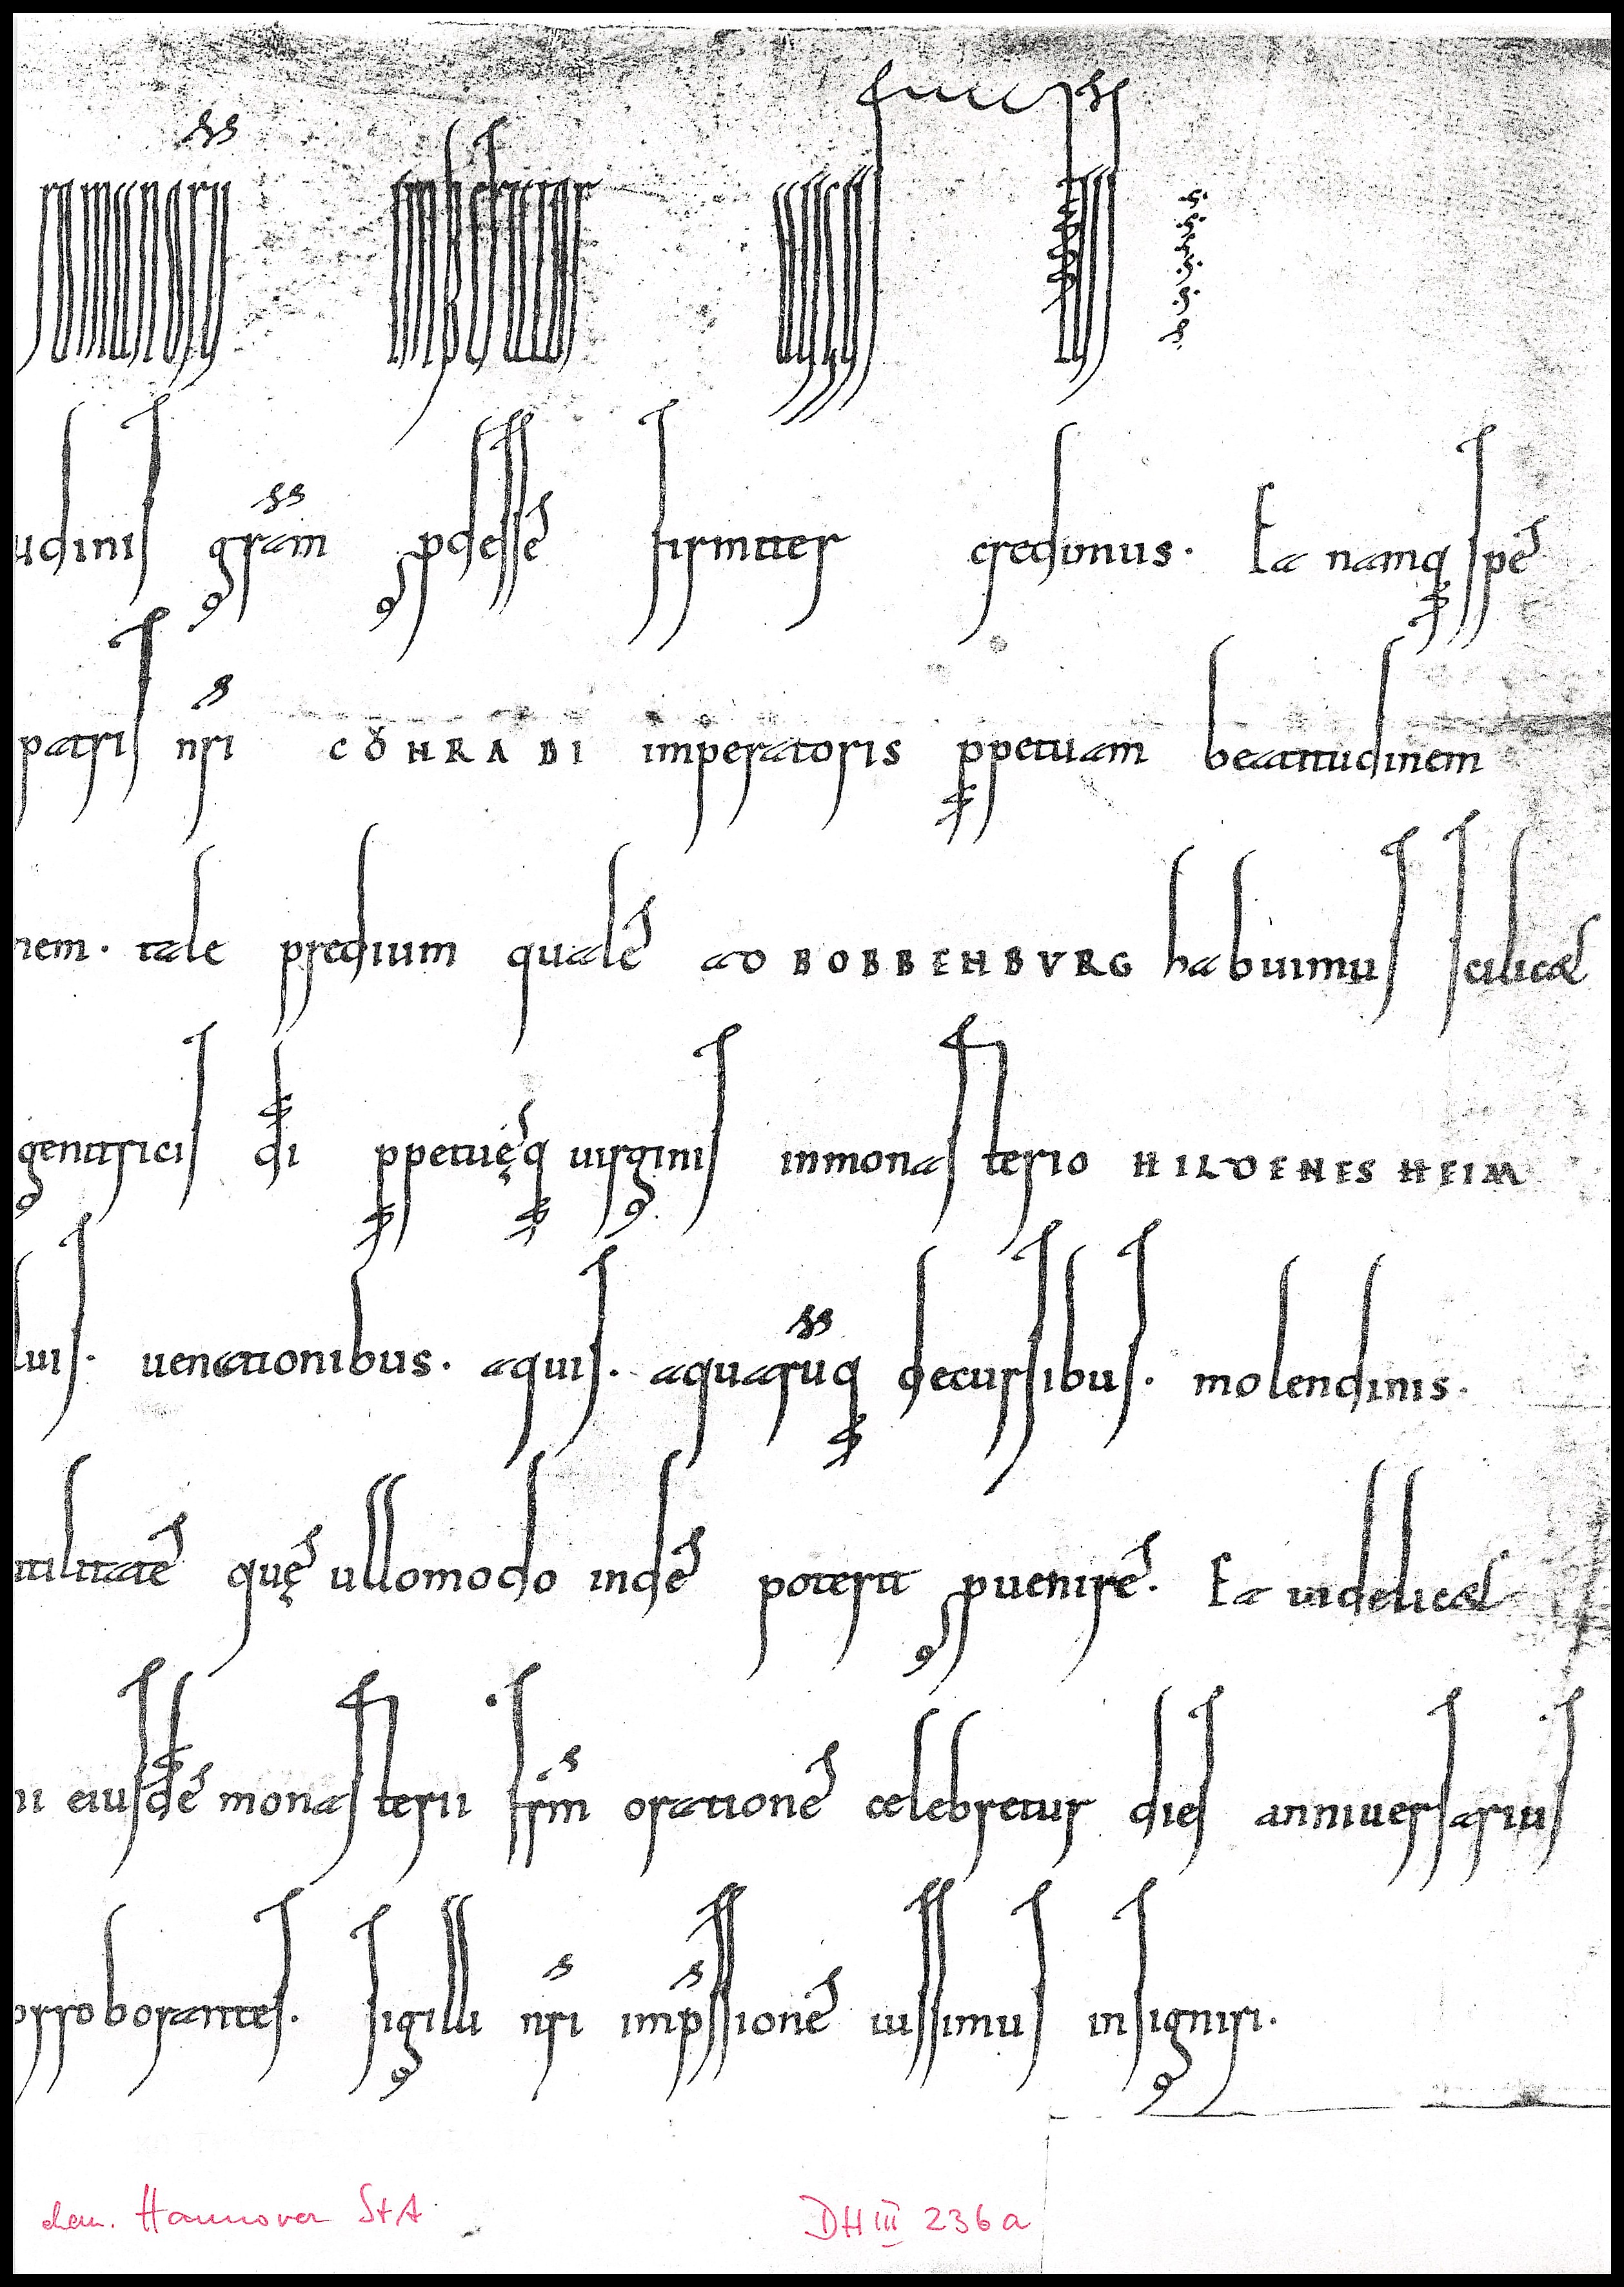 romanorū imperator augustus
udinis grām pdesse firmiter credimus. Ea namq spe
patris nri CŎNRADI imperatoris ppetuam beatitudinem
nem. tale predium quale ad BOBBENBVRG habuimus scilicet
genitricis di ppetuęq uirginis inmonasterio HILDENESHEIM
luis. uenationibus. aquis. aquarūq decursibus. molendinis.
utilitate quę ullomodo inde poterit puenire. Ea uidelicet
ii eiusdē monasterii frm oratione celebretur dies anniuersarius
orroborantes. sigilli nri impssione iussimus insigniri.
chem. Hannover StA
DH III 236a